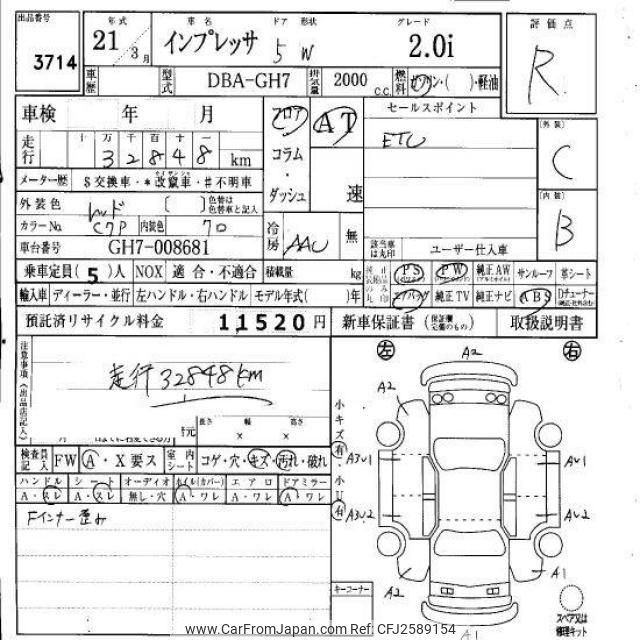 出品番号 年式 車名 ドア 形状 グレード 評価点
3714 21 3月 インプレッサ 5 W 2.0i R
車歴 型式 DBA-GH7 排気量 2000 c.c. 燃料 ガソリン・( )・軽油
車検 年 月 フロア AT セールスポイント
ETC 外装 C
走行 十 万 千 百 十 一
3 2 8 4 8 km コラム・ダッシュ 速
メーター歴 $交換車・*改竄車・#不明車 内装 B
外装色 レッド [ ] 色替は色替車と記入
カラーNo. C7P 内装色 70 冷房 AAC 無
車台番号 GH7-008681 該当車は丸印 ユーザー仕入車
乗車定員(5)人 NOX 適合・不適合 積載量 kg PS PW 純正AW サンルーフ 革シート
輸入車 ディーラー・並行 左ハンドル・右ハンドル モデル年式( )年 エアバッグ 純正TV 純正ナビ ABS Dチューナー
預託済リサイクル料金 11520円 新車保証書 (保証欄完備のもの) 取扱説明書
注意事項《出品店記入》 左 A2 右
走行32848km A2
小キズ有・小U有
長さ 幅 高さ
× ×
検査員記入 FW A・X要ス 室内シート コゲ・穴・キズ・汚れ・破れ A3U1 AU1
ハンドル シート オーディオ ホイル(カバー) エアロ ドアミラー
A・スレ A・スレ 無し・穴 A・ワレ A・ワレ A・ワレ
A3U2 AU2
Fインナー歪み
キーコーナー A2 A1
A1 スペア又は修理キット
www.CarFromJapan.com Ref: CFJ2589154